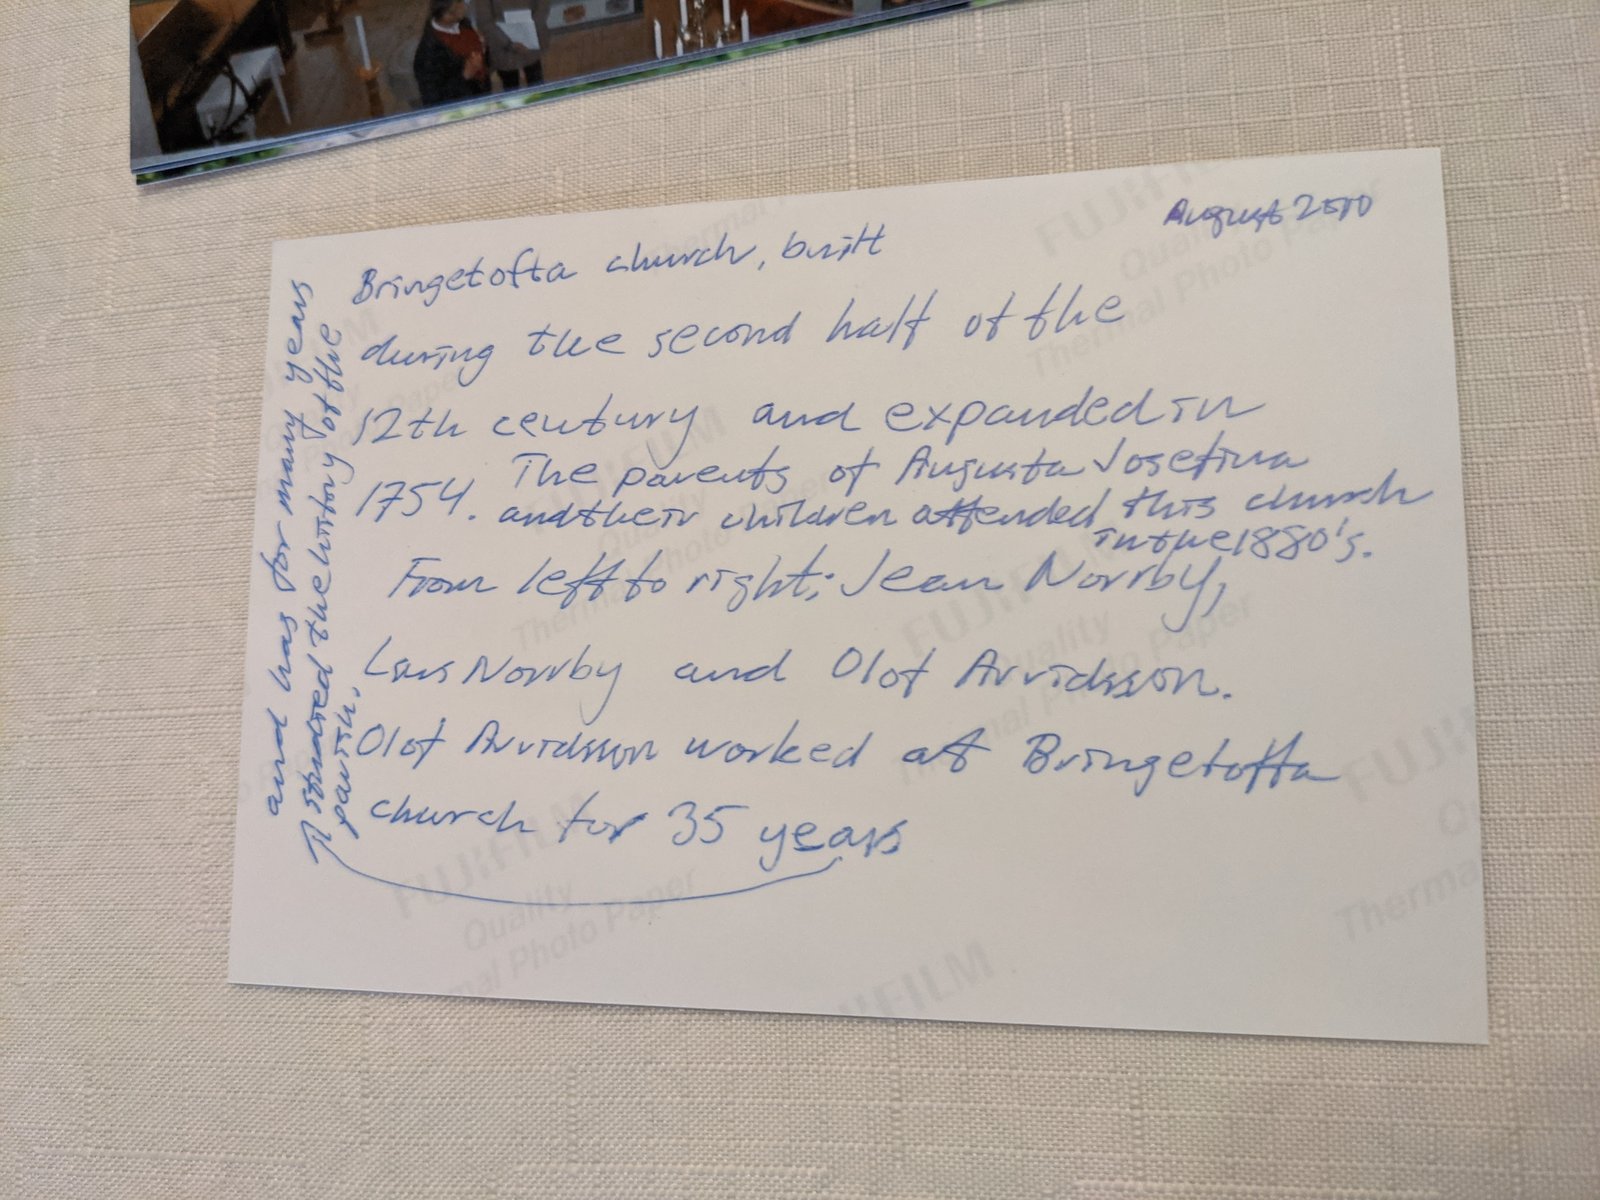 August 2000
Bringetofta church, built
during the second half of the
12th century and expanded in
1754. The parents of Augusta Josefina
and their children attended this church
in the 1880's.
From left to right: Jean Norrby,
Lars Norrby and Olof Arvidsson.
Olof Arvidsson worked at Bringetofta
church for 35 years
and has for many years
studied the history of the
parish.
FUJIFILM
Quality
Thermal Photo Paper